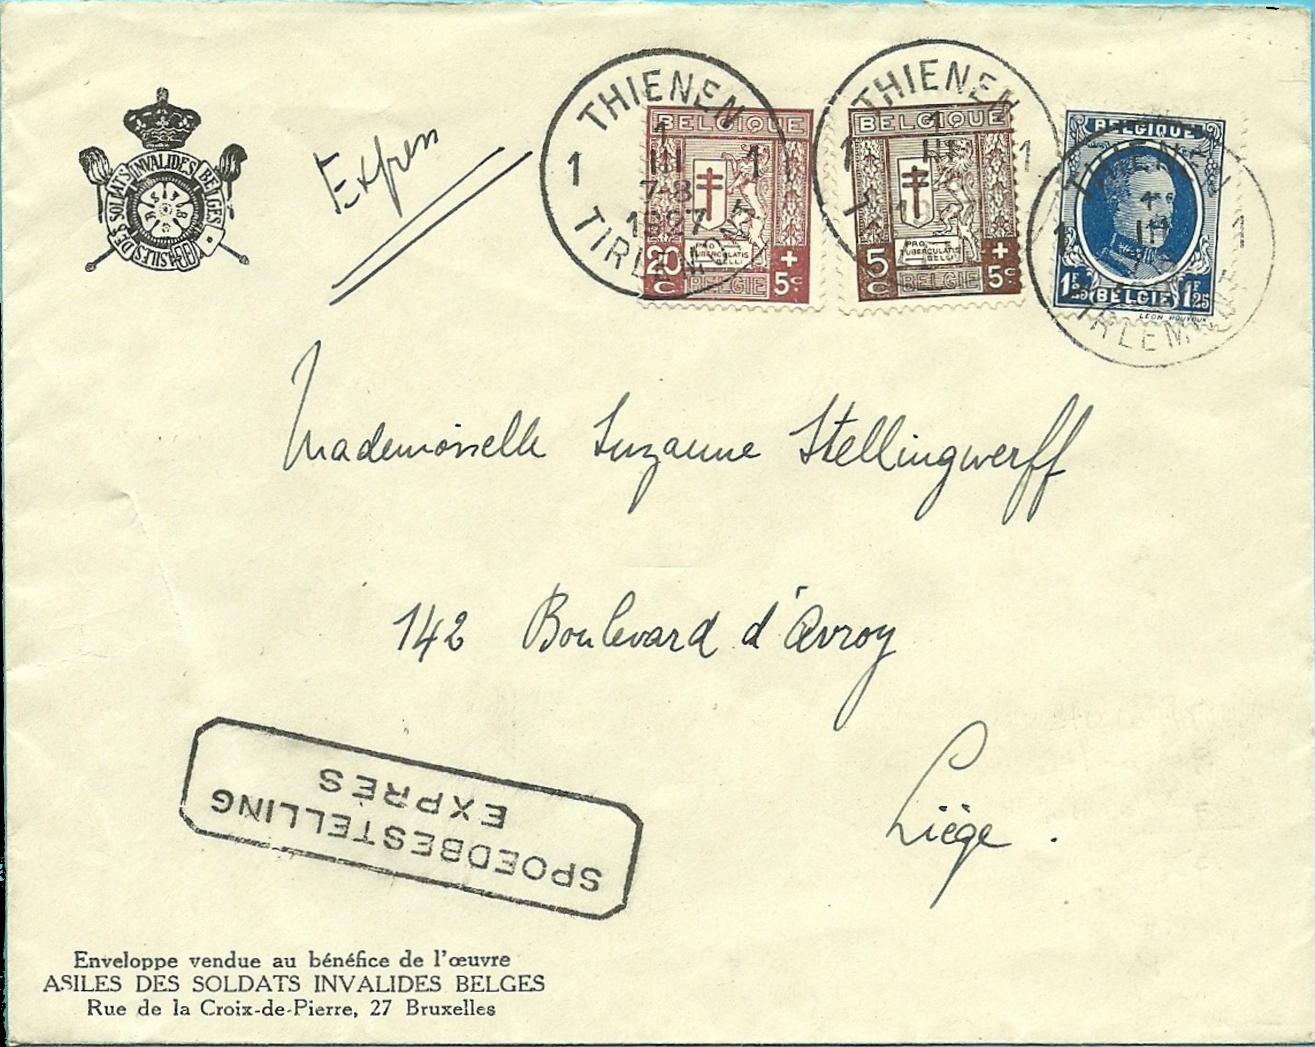 ASILES DES SOLDATS INVALIDES BELGES
Exprès
THIENEN
1 1
1
III
7-8
1927
TIRLEMONT
BELGIQUE
PRO
TUBERCULATIS
BELLI
20 c + 5 c
BELGIE
THIENEN
1 1
1
III
BELGIQUE
PRO
TUBERCULATIS
BELLI
5 c + 5 c
BELGIE
THIENEN
1 1
III
TIRLEMONT
BELGIQUE
1F25 BELGIE 1F25
LEON HOUYOUX
Mademoiselle Suzanne Stellingwerff
142 Boulevard d'Avroy
Liège.
SPOEDBESTELLING
EXPRÈS
Enveloppe vendue au bénéfice de l'œuvre
ASILES DES SOLDATS INVALIDES BELGES
Rue de la Croix-de-Pierre, 27 Bruxelles